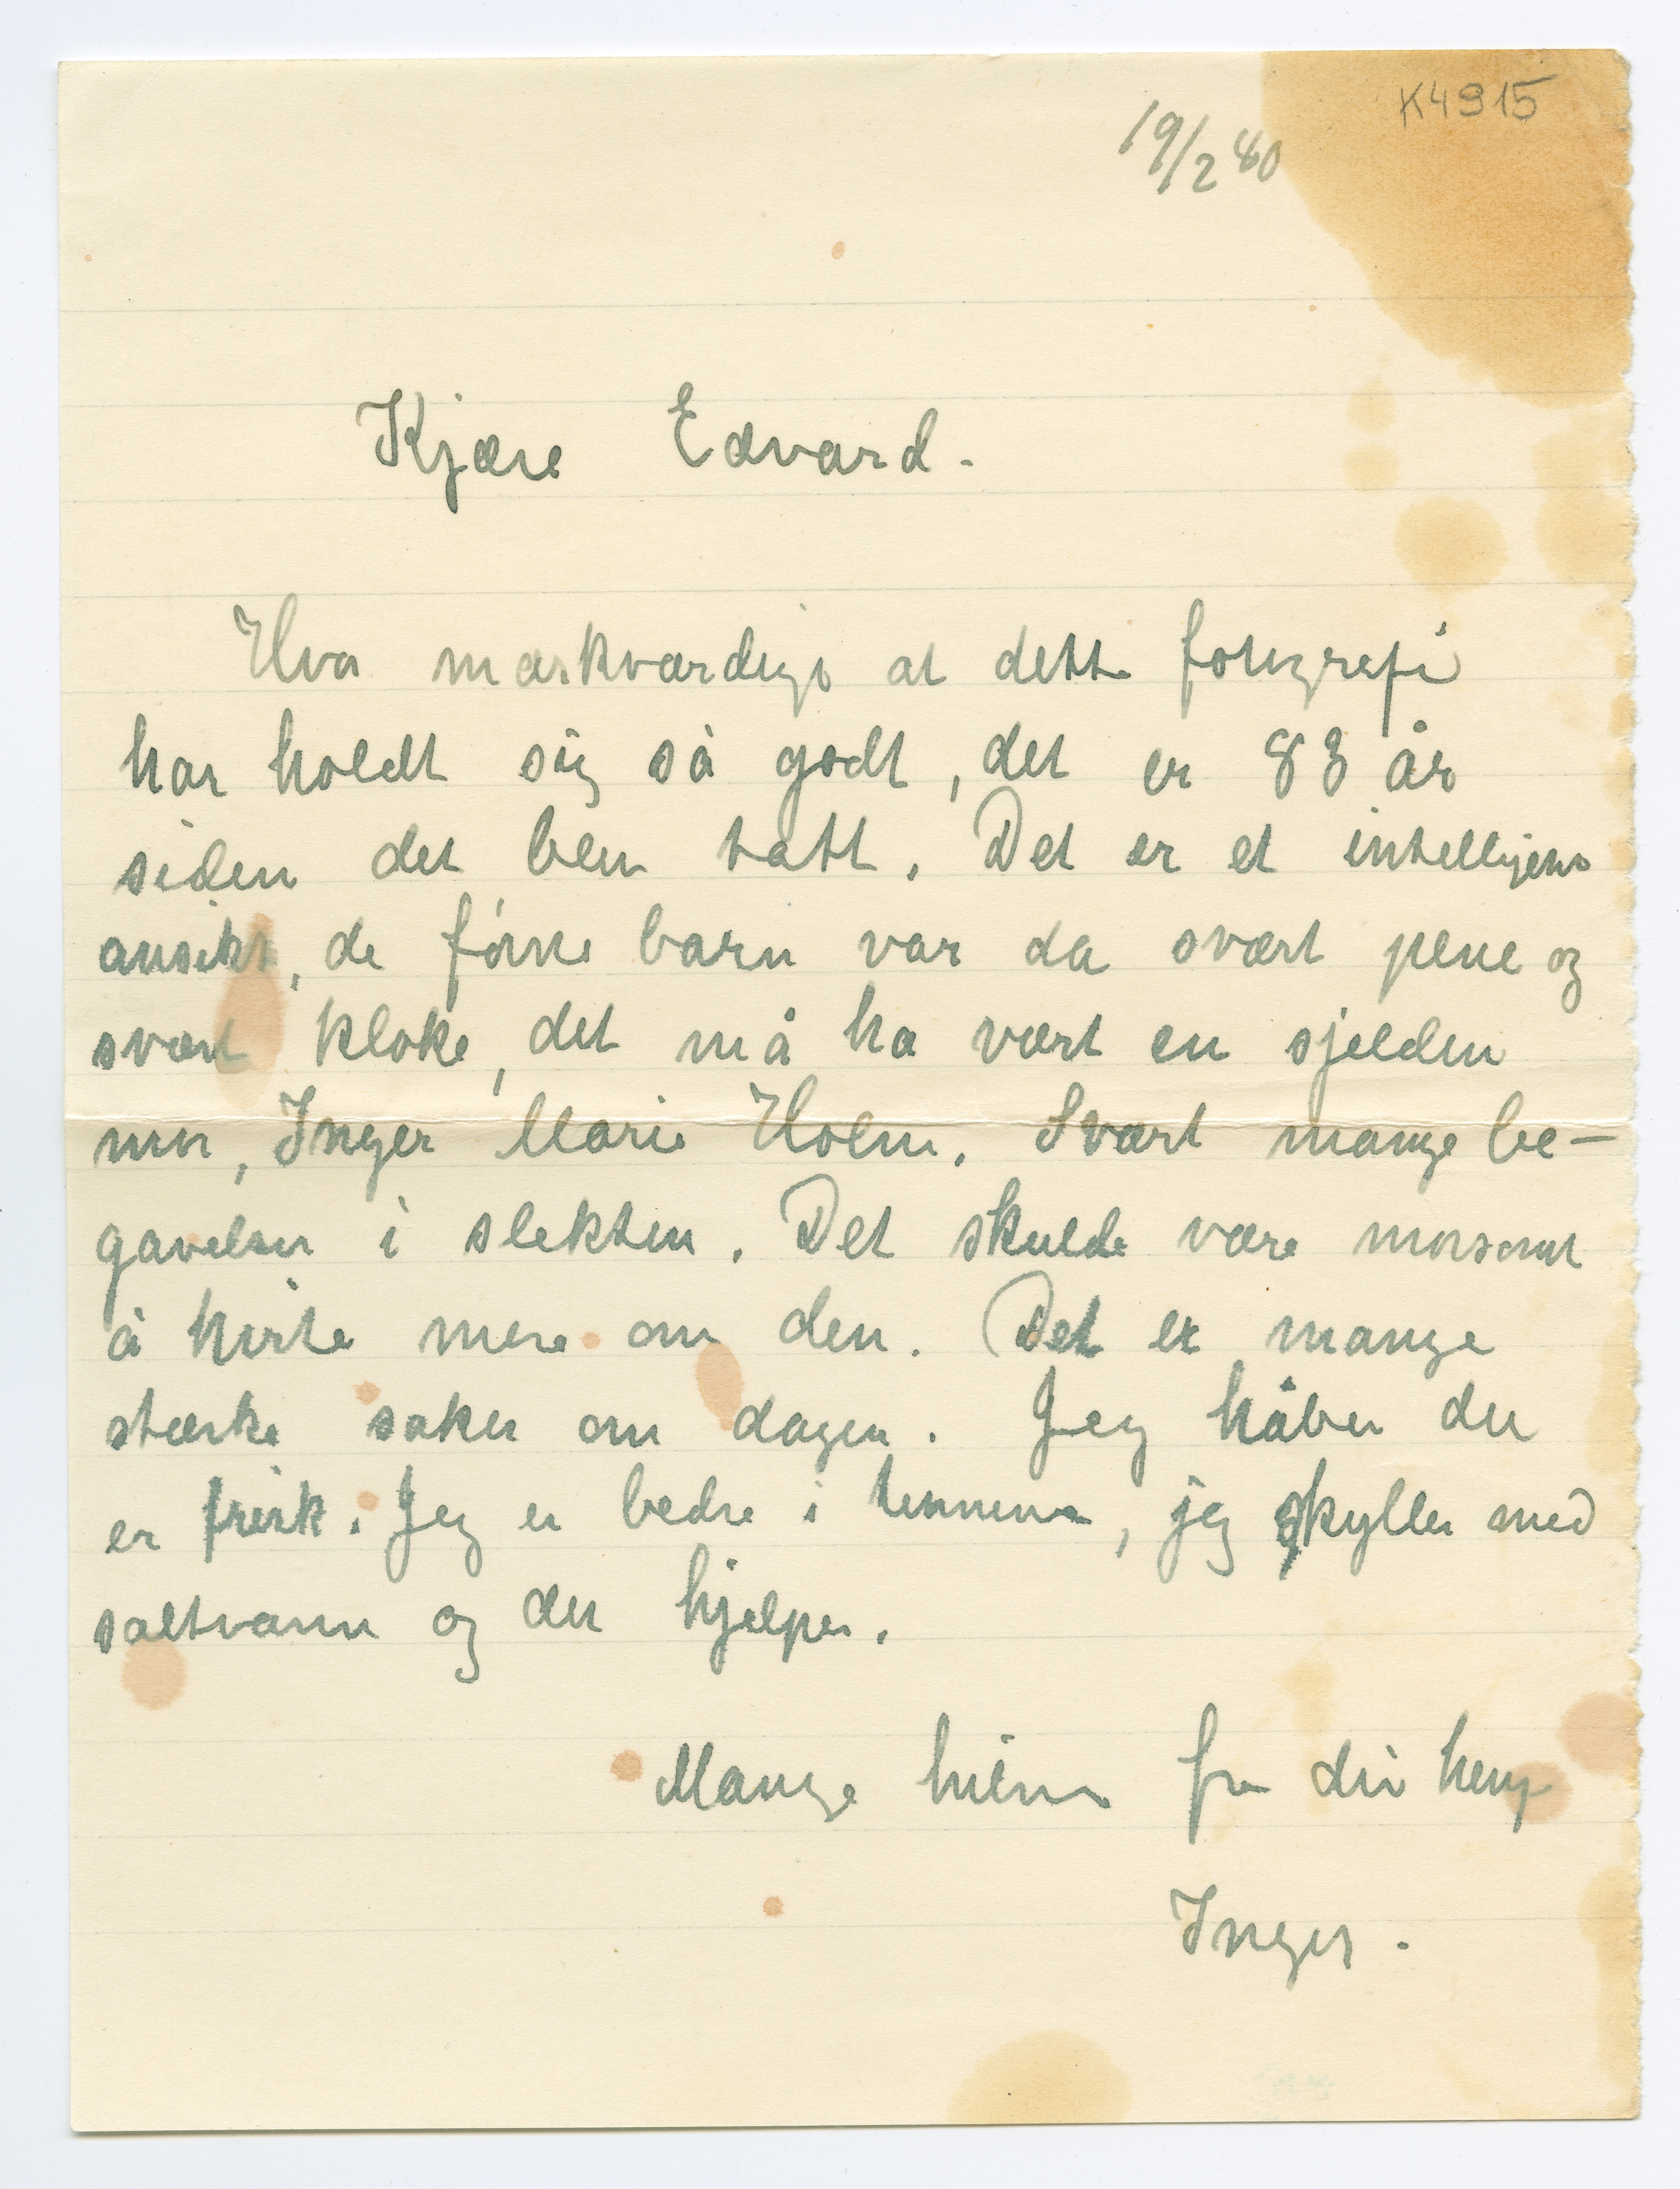 K4915
19/2 40
Kjære Edvard.
Hva mærkværdigt at dette fotografi
har holdt sig så godt, det er 83 år
siden det blev tatt. Det er et intelligens
ansikt, de førse barn var da svært pene og
svært kloke, det må ha vært en sjelden
mor, Inger Marie Holm. Svært mange be-
gavelser i slekten. Det skulde være morsomt
å høre mere om den. Det er mange
stærke saker om dagen. Jeg håber du
er frisk. Jeg er bedre i tennene, jeg skyller med
saltvann og det hjelper.
Mange hilsen fra din heng.
Inger.